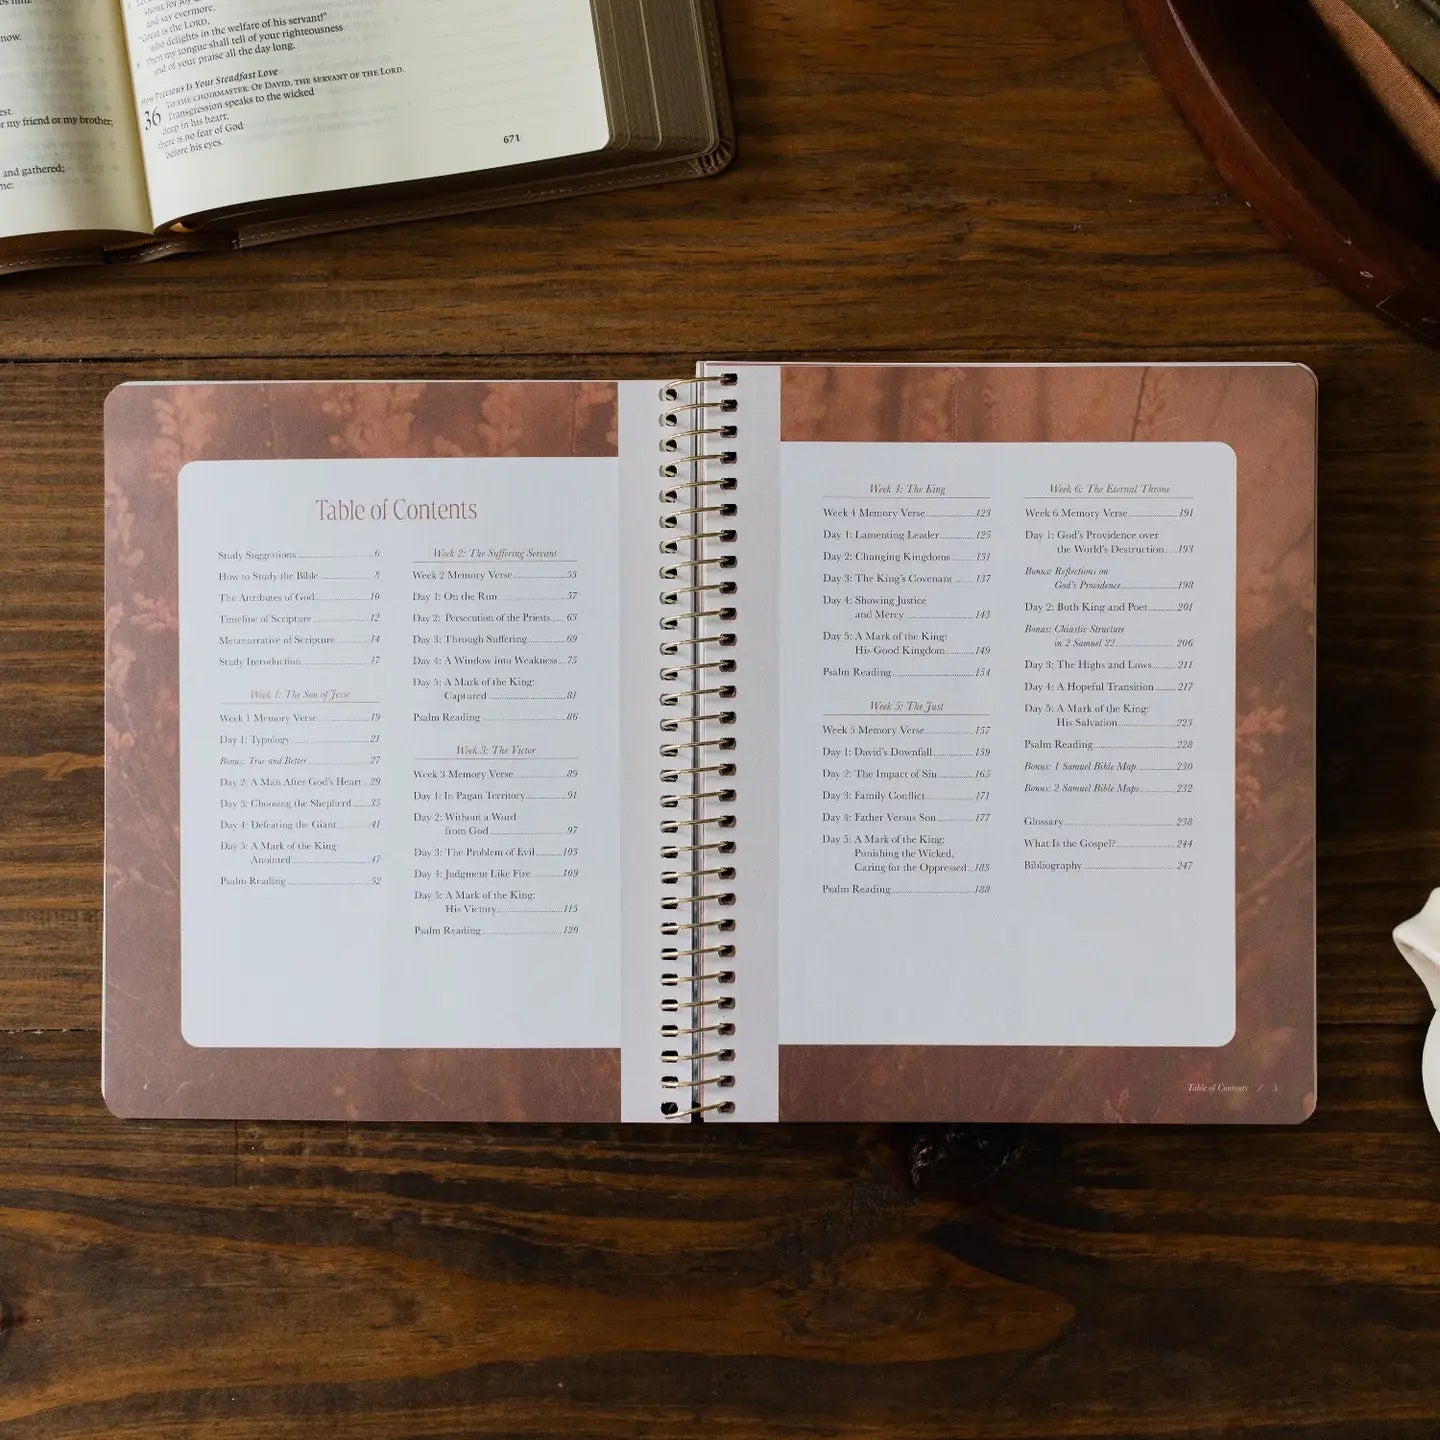 shout for joy
and say evermore,
"Great is the LORD,
who delights in the welfare of his servant!"
Then my tongue shall tell of your righteousness
and of your praise all the day long.
How Precious Is Your Steadfast Love
TO THE CHOIRMASTER. OF DAVID, THE SERVANT OF THE LORD.
36 Transgression speaks to the wicked
deep in his heart;
there is no fear of God
before his eyes.
671
now.
my friend or my brother;
and gathered;
Table of Contents
Study Suggestions 6
How to Study the Bible 8
The Attributes of God 10
Timeline of Scripture 12
Metanarrative of Scripture 14
Study Introduction 17
Week 1: The Son of Jesse
Week 1 Memory Verse 19
Day 1: Typology 21
Bonus: True and Better 27
Day 2: A Man After God's Heart 29
Day 3: Choosing the Shepherd 35
Day 4: Defeating the Giant 41
Day 5: A Mark of the King:
Anointed 47
Psalm Reading 52
Week 2: The Suffering Servant
Week 2 Memory Verse 55
Day 1: On the Run 57
Day 2: Persecution of the Priests 63
Day 3: Through Suffering 69
Day 4: A Window into Weakness 75
Day 5: A Mark of the King:
Captured 81
Psalm Reading 86
Week 3: The Victor
Week 3 Memory Verse 89
Day 1: In Pagan Territory 91
Day 2: Without a Word
from God 97
Day 3: The Problem of Evil 103
Day 4: Judgment Like Fire 109
Day 5: A Mark of the King:
His Victory 115
Psalm Reading 120
Week 4: The King
Week 4 Memory Verse 123
Day 1: Lamenting Leader 125
Day 2: Changing Kingdoms 131
Day 3: The King's Covenant 137
Day 4: Showing Justice
and Mercy 143
Day 5: A Mark of the King:
His Good Kingdom 149
Psalm Reading 154
Week 5: The Just
Week 5 Memory Verse 157
Day 1: David's Downfall 159
Day 2: The Impact of Sin 165
Day 3: Family Conflict 171
Day 4: Father Versus Son 177
Day 5: A Mark of the King:
Punishing the Wicked,
Caring for the Oppressed 183
Psalm Reading 188
Week 6: The Eternal Throne
Week 6 Memory Verse 191
Day 1: God's Providence over
the World's Destruction 193
Bonus: Reflections on
God's Providence 198
Day 2: Both King and Poet 201
Bonus: Chiastic Structure
in 2 Samuel 22 206
Day 3: The Highs and Lows 211
Day 4: A Hopeful Transition 217
Day 5: A Mark of the King:
His Salvation 223
Psalm Reading 228
Bonus: 1 Samuel Bible Map 230
Bonus: 2 Samuel Bible Maps 232
Glossary 238
What Is the Gospel? 244
Bibliography 247
Table of Contents / 5